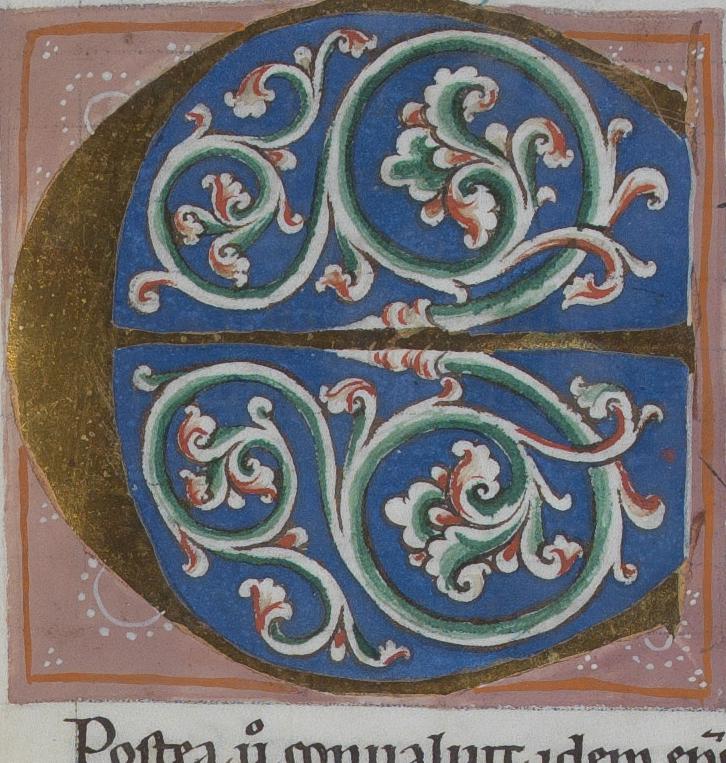 E
Postea ů conualuit idem